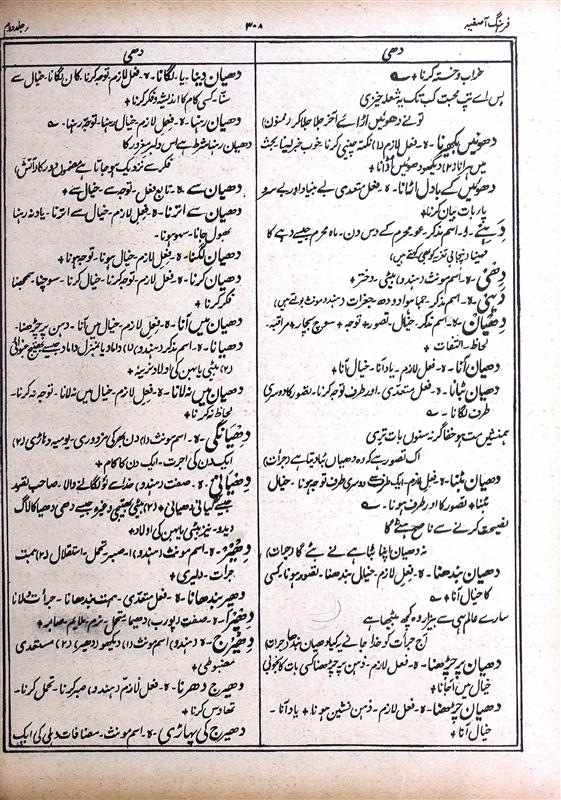 فرہنگ آصفیہ
۳۰۸
جلد دوم
دھی
خراب و خستہ کرنا +
بس اے تپ محبت کب تک یہ شعلہ خیزی
تونے دھوئیں اڑائے آخر جلا جلا کر (ممنون)
دھوئیں بکھیرنا - ہ - فعل لازم (۱) نکتہ چینی کرنا - خوب خبر لینا - بحث
میں ہرانا (۲) دیکھو دھوئیں اڑانا +
دھوئیں کے بادل اڑانا - ہ - فعل متعدی - بے بنیاد اور بے سر و
پا بات بیان کرنا +
اسم مذکر - عو - محرم کے دس دن - ماہ محرم جسے دہے کا
مہینا (پنجابی تعزیہ کو بھی کہتے ہیں)
ہ - اسم مونث (ہندو) بیٹی - دختر +
دہی - ہ - اسم مذکر - جما ہوا دودھ - جغرات (ہندو مونث بولتے ہیں)
دھیان - ہ - اسم مذکر - خیال - تصور + توجہ + سوچ بچار + مراقبہ -
لحاظ - التفات +
دھیان آنا - ہ - فعل لازم - یاد آنا - خیال آنا +
دھیان بٹانا - ہ - فعل متعدی - اور طرف توجہ کرنا - تصور کا دوسری
طرف لگانا -
ہمنشیں مت ہو خفا گر نہ سنوں بات تری
اک تصور ہے کہ وہ دھیان بٹا دیتا ہے (جرأت)
دھیان بٹنا - ہ - فعل لازم - ایک طرف سے دوسری طرف توجہ ہونا - خیال
بٹنا + تصور کا اور طرف ہونا -
نصیحت کرنے سے ناصح
نہ دھیان اپنا بٹا ہے نے بٹے گا (جرأت)
دھیان بندھنا - ہ - فعل لازم - خیال بندھنا - تصور ہونا - کسی
کا خیال آنا +
سارے عالم ہی سے بیزار وہ کچھ بیٹھا ہے
آج جرأت کو خدا جانے یہ کیا دھیان بندھا (جرأت)
دھیان پر چڑھنا - ہ - فعل لازم - ذہن پر چڑھنا کسی بات کا بخوبی
خیال میں آجانا +
دھیان چڑھنا - ہ - فعل لازم - ذہن نشین ہونا + یاد آنا -
خیال آنا +
دھی
دھیان دینا - یا - لگانا - ہ - فعل لازم - توجہ کرنا - کان لگانا - خیال سے
سننا - کسی کام کا اندیشہ و فکر کرنا +
دھیان رہنا - ہ - فعل لازم - خیال رہنا - توجہ رہنا -
دھیان رہنا شرط ہے اس دلبر مغرور کا
فکر سے نزدیک ہو جاتا ہے مضمون دور کا (آتش)
دھیان سے - ہ - تابع فعل - توجہ سے - خیال سے +
دھیان سے اترنا - ہ - فعل لازم - خیال سے اترنا - یاد نہ رہنا
بھول جانا - سہو ہونا -
دھیان لگنا - ہ - فعل لازم - خیال ہونا - توجہ ہونا +
دھیان کرنا - ہ - فعل لازم - توجہ کرنا - خیال کرنا - سوچنا - سمجھنا
فکر کرنا +
دھیان میں آنا - ہ - فعل لازم - خیال میں آنا - ذہن پر چڑھنا -
دھیانا - ہ - اسم مذکر (ہندو) (۱) داماد یا بمنزل داماد جیسے
(۲) بیٹی یا بہن کی اولاد نرینہ +
دھیان میں نہ لانا - ہ - فعل لازم - خیال میں نہ لانا - توجہ نہ کرنا -
لحاظ نہ کرنا +
دھیانگی - ہ - اسم مونث (۱) دن بھر کی مزدوری - یومیہ و دہاڑی (۲)
ایک دن کی اجرت - ایک دن کا کام +
دھیانی - ہ - صفت (ہندو) خدا سے لو لگانے والا - صاحب تصور
جیسے گیانی دھیانی + (۲) بیٹی بھتیجی وغیرہ جیسے دھی دھیانی کا لاگ
دیدو - نیز بیٹی یا بہن کی اولاد +
ہ - اسم مونث (ہندو) صبر - تحمل - استقلال (۲) ہمت
جرأت - دلیری +
دھیر بندھانا - ہ - فعل متعدی - ہمت بندھانا - جرأت دلانا
دھیرا - ہ - صفت (پورب) دھیما - متحمل - نرم - ملایم - صابر +
دھیرج - ہ - (ہندو) اسم مونث (۱) دیکھو (دھیر) (۲) مستعدی
مضبوطی +
دھیرج دھرنا - ہ - فعل لازم (ہندو) صبر کرنا - تحمل کرنا -
کرنا +
دھیرج کی پہاڑی - ہ - اسم مونث - مضافات دہلی کی ایک